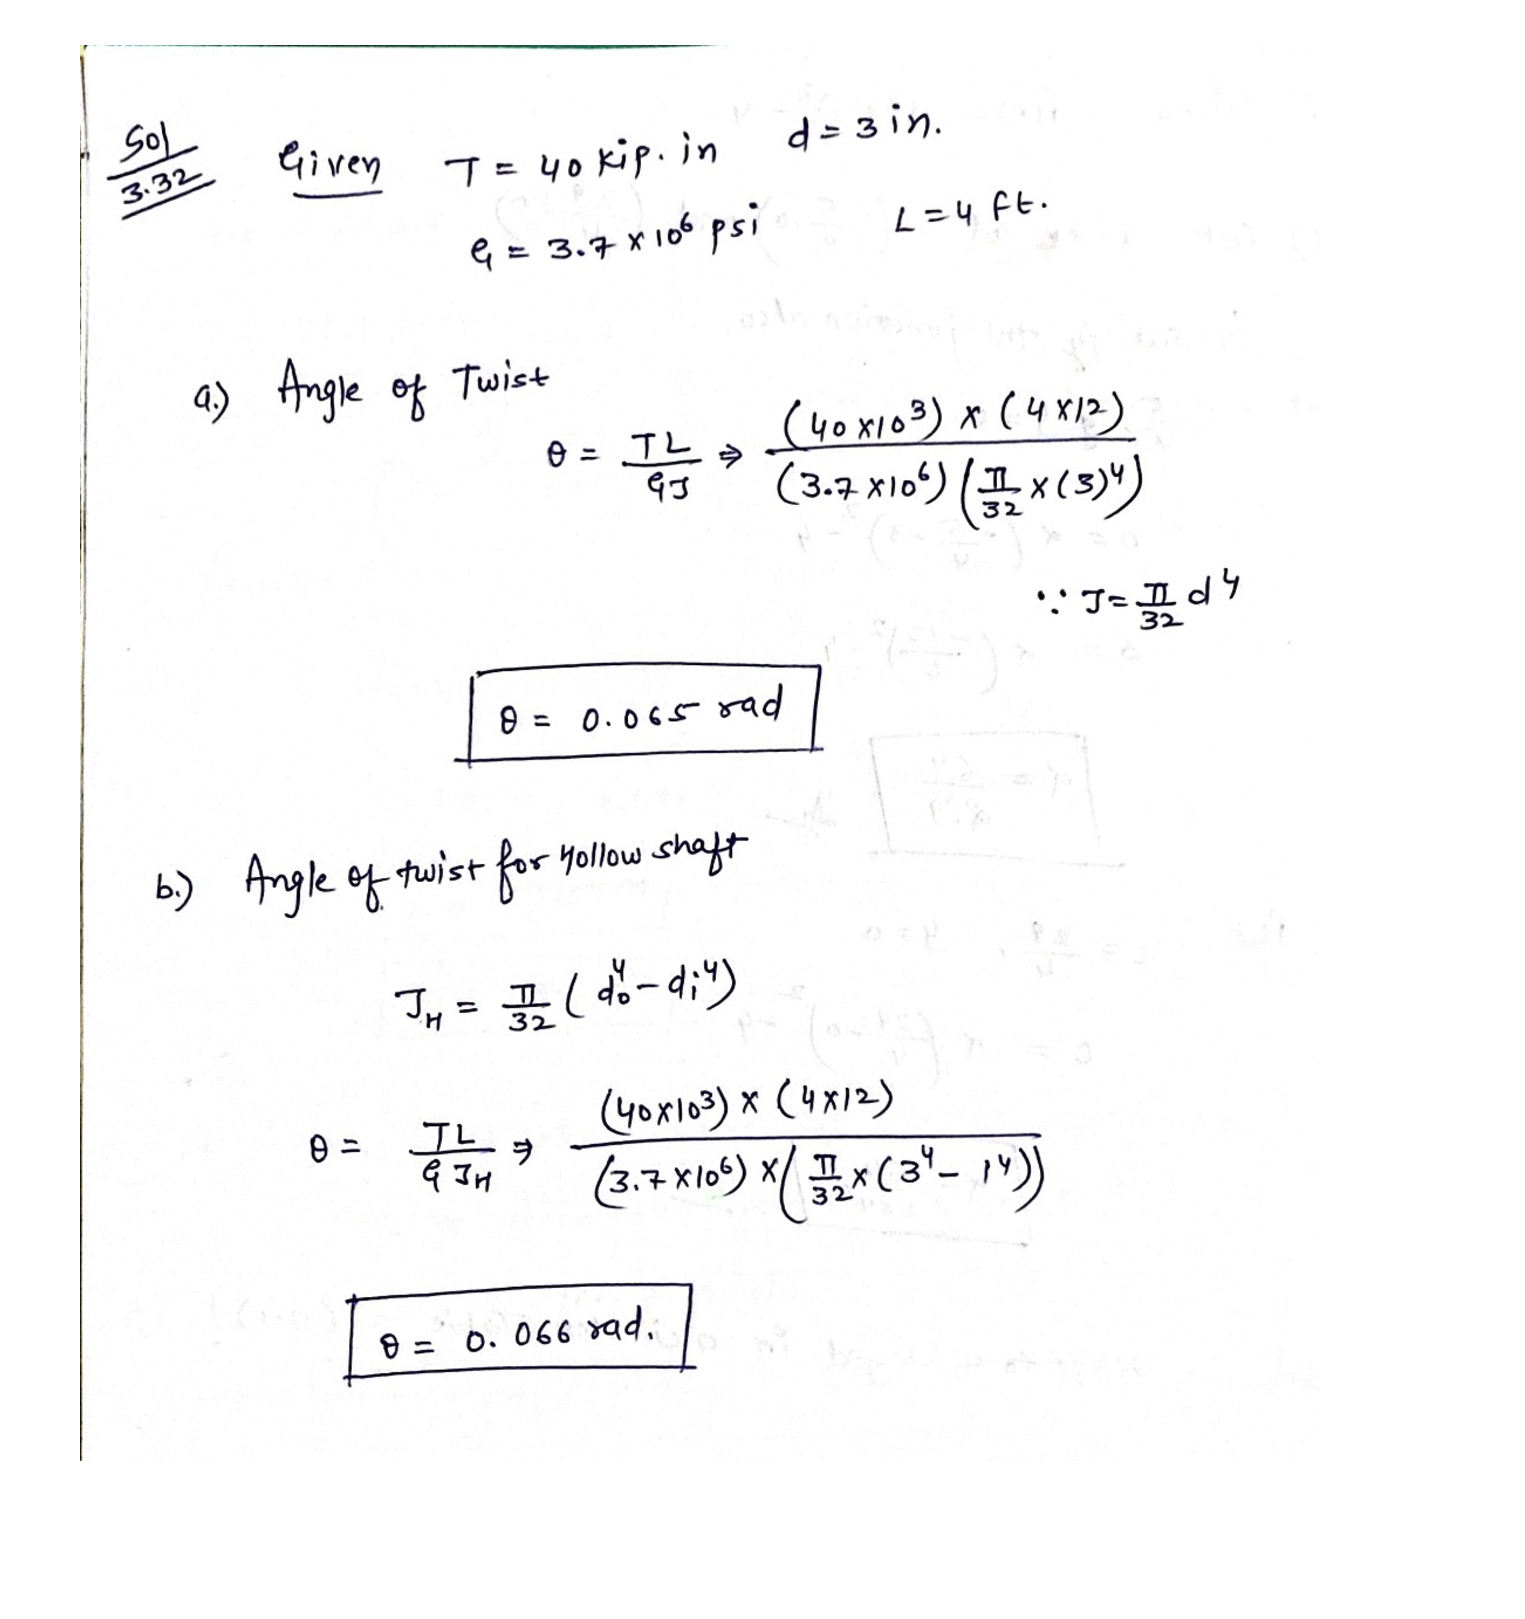 Sol 3.32
Given T = 40 kip. in d = 3 in.
G = 3.7 × 10⁶ psi L = 4 ft.
a.) Angle of Twist
θ = TL/GJ ⇒ (40×10³) × (4×12) / (3.7×10⁶) (π/32 × (3)⁴)
∵ J = π/32 d⁴
θ = 0.065 rad
b.) Angle of twist for Hollow shaft
J_H = π/32 (d₀⁴ - dᵢ⁴)
θ = TL/GJ_H ⇒ (40×10³) × (4×12) / (3.7×10⁶) × (π/32 × (3⁴ - 1⁴))
θ = 0.066 rad.